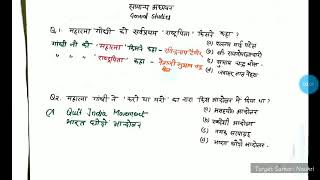 सामान्य अध्ययन
General Studies
Q.1. महात्मा गाँधी को सर्वप्रथम 'राष्ट्रपिता' किसने कहा?
गाँधी जी को 'महात्मा' किसने कहा - रवीन्द्रनाथ टैगोर
" " " 'राष्ट्रपिता' कहा - नेताजी सुभाष चन्द्र बोस
(c) सुभाष चन्द्र बोस
Q2. महात्मा गाँधी ने 'करो या मरो' का नारा किस आन्दोलन में दिया था?
Quit India Movement
भारत छोड़ो आन्दोलन
(b) स्वदेशी आन्दोलन
(c) नमक सत्याग्रह
(d) भारत छोड़ो आन्दोलन
Target Sarkari Naukri